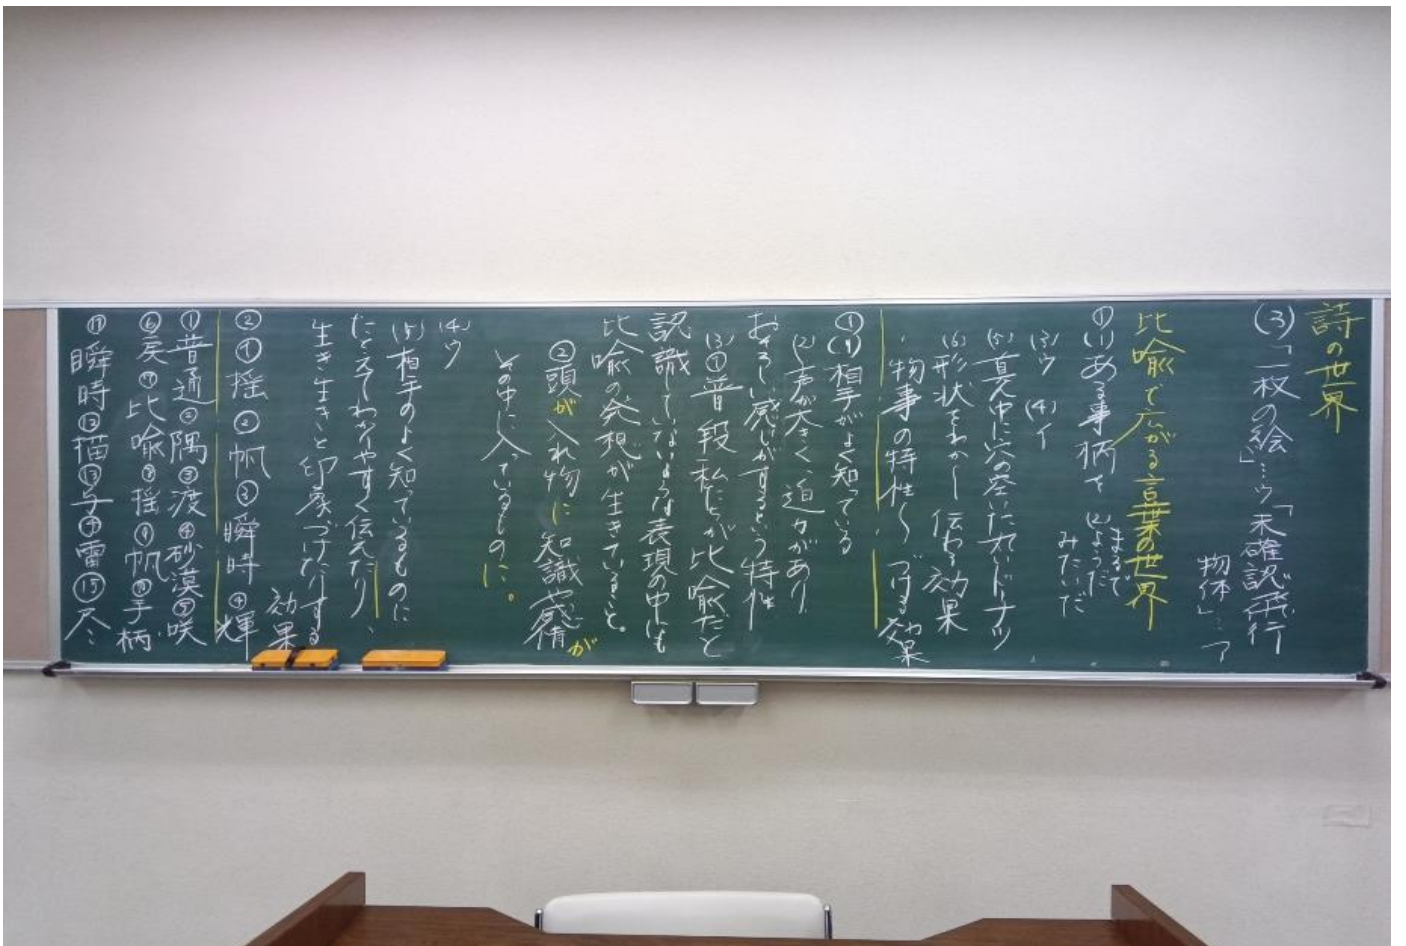 詩の世界
(3)「一枚の絵」…ウ「未確認飛行
物体」…ア
比喩で広がる言葉の世界
①(1)ある事柄を (2)まるで
ようだ
みたいだ
(3)ウ (4)イ
(5)真ん中に穴の空いた丸いドーナツ
(6)形状をわかー伝わる効果
・物事の特性〜づける効果
①(1)相手がよく知っている
(2)声が大きく、迫力があり
おそろしい感じがするという特性
(3)①普段私たちが比喩だと
認識していないような表現の中にも
比喩の発想が生きていること。
②頭が入れ物に知識や感情が
その中に入っているものに。
(4)ウ
(5)相手のよく知っているものに
たとえてわかりやすく伝えたり、
生き生きと印象づけたりする
効果
②①揺②帆③瞬時④輝
①普通②隅③渡④砂漠⑤咲
⑥戻⑦比喩⑧揺⑨帆⑩手柄
⑪瞬時⑫描⑬与⑭雷⑮尽